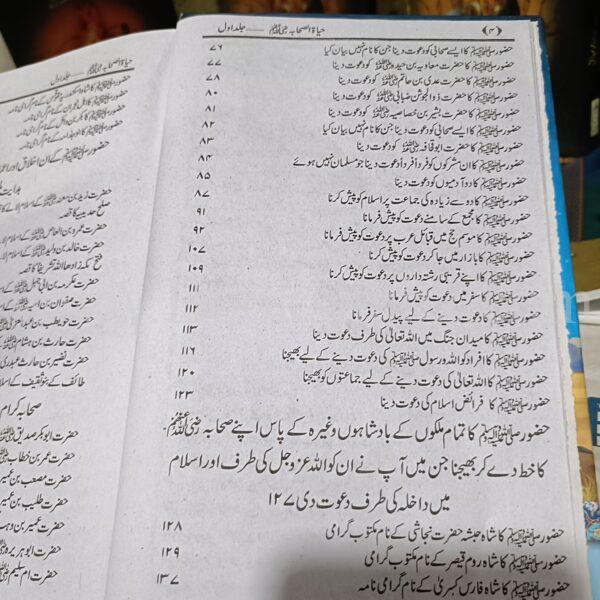 ﴿۴﴾ حیاۃ الصحابہ رضی اللہ عنہم —— جلد اول
حضور ﷺ کا ایسے صحابی کو دعوت دینا جن کا نام نہیں بیان کیا ۷۶
حضور ﷺ کا حضرت معاویہ بن حیدہ رضی اللہ عنہ کو دعوت دینا ۷۷
حضور ﷺ کا حضرت عدی بن حاتم رضی اللہ عنہ کو دعوت دینا ۷۸
حضور ﷺ کا حضرت ذوالجوشن ضبابی رضی اللہ عنہ کو دعوت دینا ۸۰
حضور ﷺ کا حضرت بشیر بن خصاصیہ رضی اللہ عنہ کو دعوت دینا ۸۱
حضور ﷺ کا ایسے صحابی کو دعوت دینا جن کا نام نہیں بیان کیا ۸۲
حضور ﷺ کا حضرت ابو قحافہ رضی اللہ عنہ کو دعوت دینا ۸۳
حضور ﷺ کا ان مشرکوں کو فرداً فرداً دعوت دینا جو مسلمان نہیں ہوئے ۸۴
حضور ﷺ کا دو آدمیوں کو دعوت دینا ۸۵
حضور ﷺ کا دو سے زیادہ کی جماعت پر اسلام کو پیش کرنا ۸۷
حضور ﷺ کا مجمع کے سامنے دعوت کو پیش فرمانا ۹۱
حضور ﷺ کا موسم حج میں قبائل عرب پر دعوت کو پیش فرمانا ۹۲
حضور ﷺ کا بازار میں جا کر دعوت کو پیش کرنا ۱۰۷
حضور ﷺ کا اپنے قریبی رشتہ داروں پر دعوت کو پیش کرنا ۱۰۹
حضور ﷺ کا سفر میں دعوت کو پیش فرمانا ۱۱۱
حضور ﷺ کا دعوت دینے کے لیے پیدل سفر فرمانا ۱۱۲
حضور ﷺ کا میدان جنگ میں اللہ تعالیٰ کی طرف دعوت دینا ۱۱۳
حضور ﷺ کا افراد کو اللہ و رسول ﷺ کی دعوت دینے کے لیے بھیجنا ۱۱۶
حضور ﷺ کا اللہ تعالیٰ کی دعوت دینے کے لیے جماعتوں کو بھیجنا ۱۲۰
حضور ﷺ کا فرائض اسلام کی دعوت دینا ۱۲۳
حضور ﷺ کا تمام ملکوں کے بادشاہوں وغیرہ کے پاس اپنے صحابہ رضی اللہ عنہم
کا خط دے کر بھیجنا جن میں آپ نے ان کو اللہ عزوجل کی طرف اور اسلام
میں داخلہ کی طرف دعوت دی ۱۲۷
حضور ﷺ کا شاہ حبشہ حضرت نجاشی کے نام مکتوب گرامی ۱۲۸
حضور ﷺ کا شاہ روم قیصر کے نام مکتوب گرامی ۱۲۹
حضور ﷺ کا شاہ فارس کسریٰ کے نام گرامی نامہ ۱۳۷
حیاۃ الصحابہ رضی اللہ عنہم —— جلد اول
صلح حدیبیہ کا قصہ
حضرت عمرو بن العاص رضی اللہ عنہ کے اسلام لا
حضرت خالد بن ولید رضی اللہ عنہ کے اسلام لا
فتح مکہ زادھا اللہ تشریفا کا قصہ
حضرت عکرمہ بن ابی جہل
حضرت صفوان بن امیہ
حضرت حویطب بن عبدالعزیٰ
حضرت حارث بن ہشام
حضرت نضیر بن حارث عبدری
طائف کے بنو ثقیف کے اسلا
صحابہ کرام
حضرت ابوبکر صدیق
حضرت عمر بن خطاب
حضرت مصعب بن عمیر
حضرت طلیب بن عمیر
حضرت عمیر بن وہب
حضرت ابو ہریرہ
حضرت ام سلیم